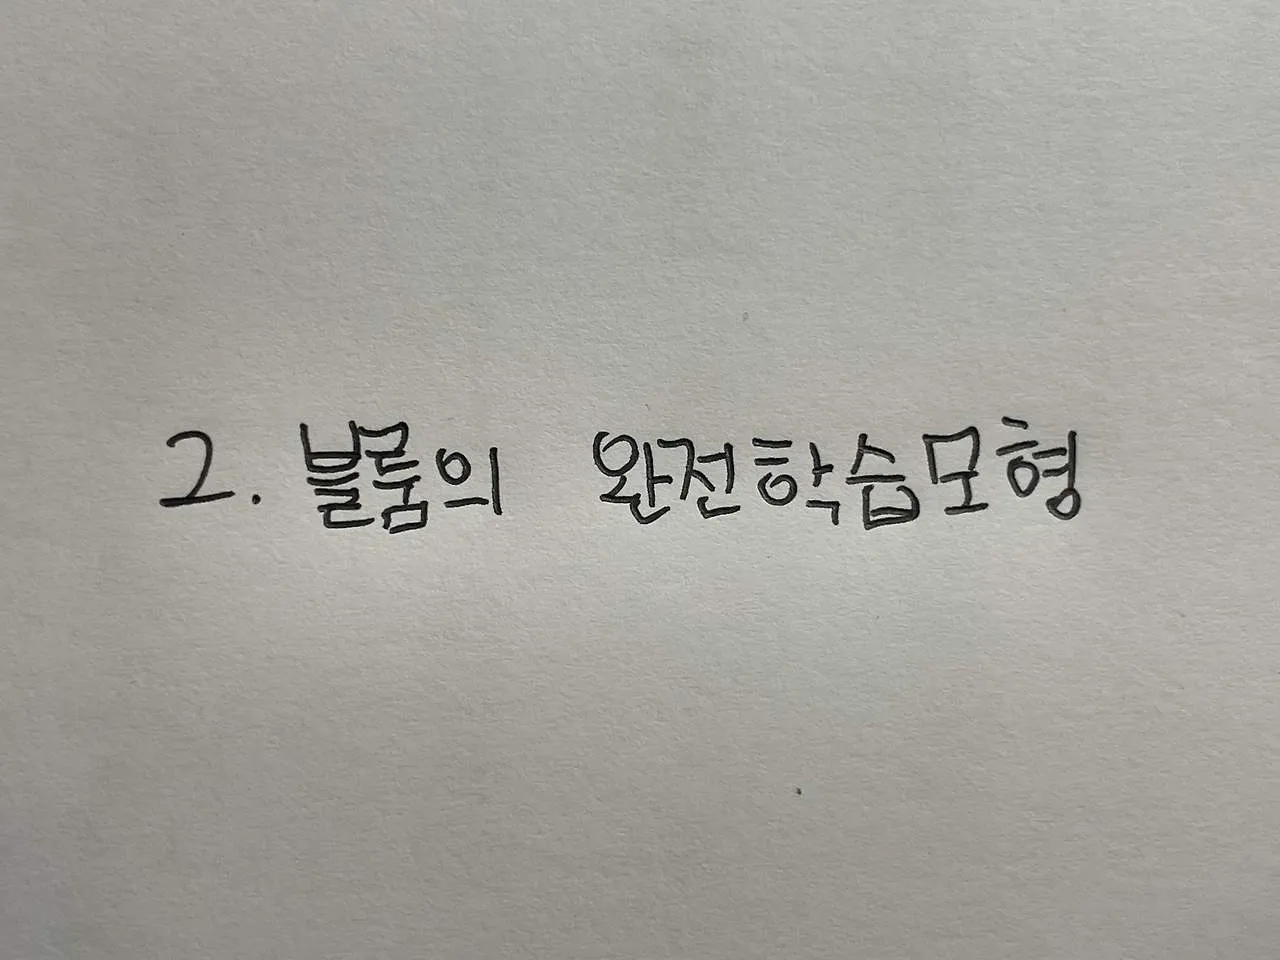 2. 블룸의 완전학습모형